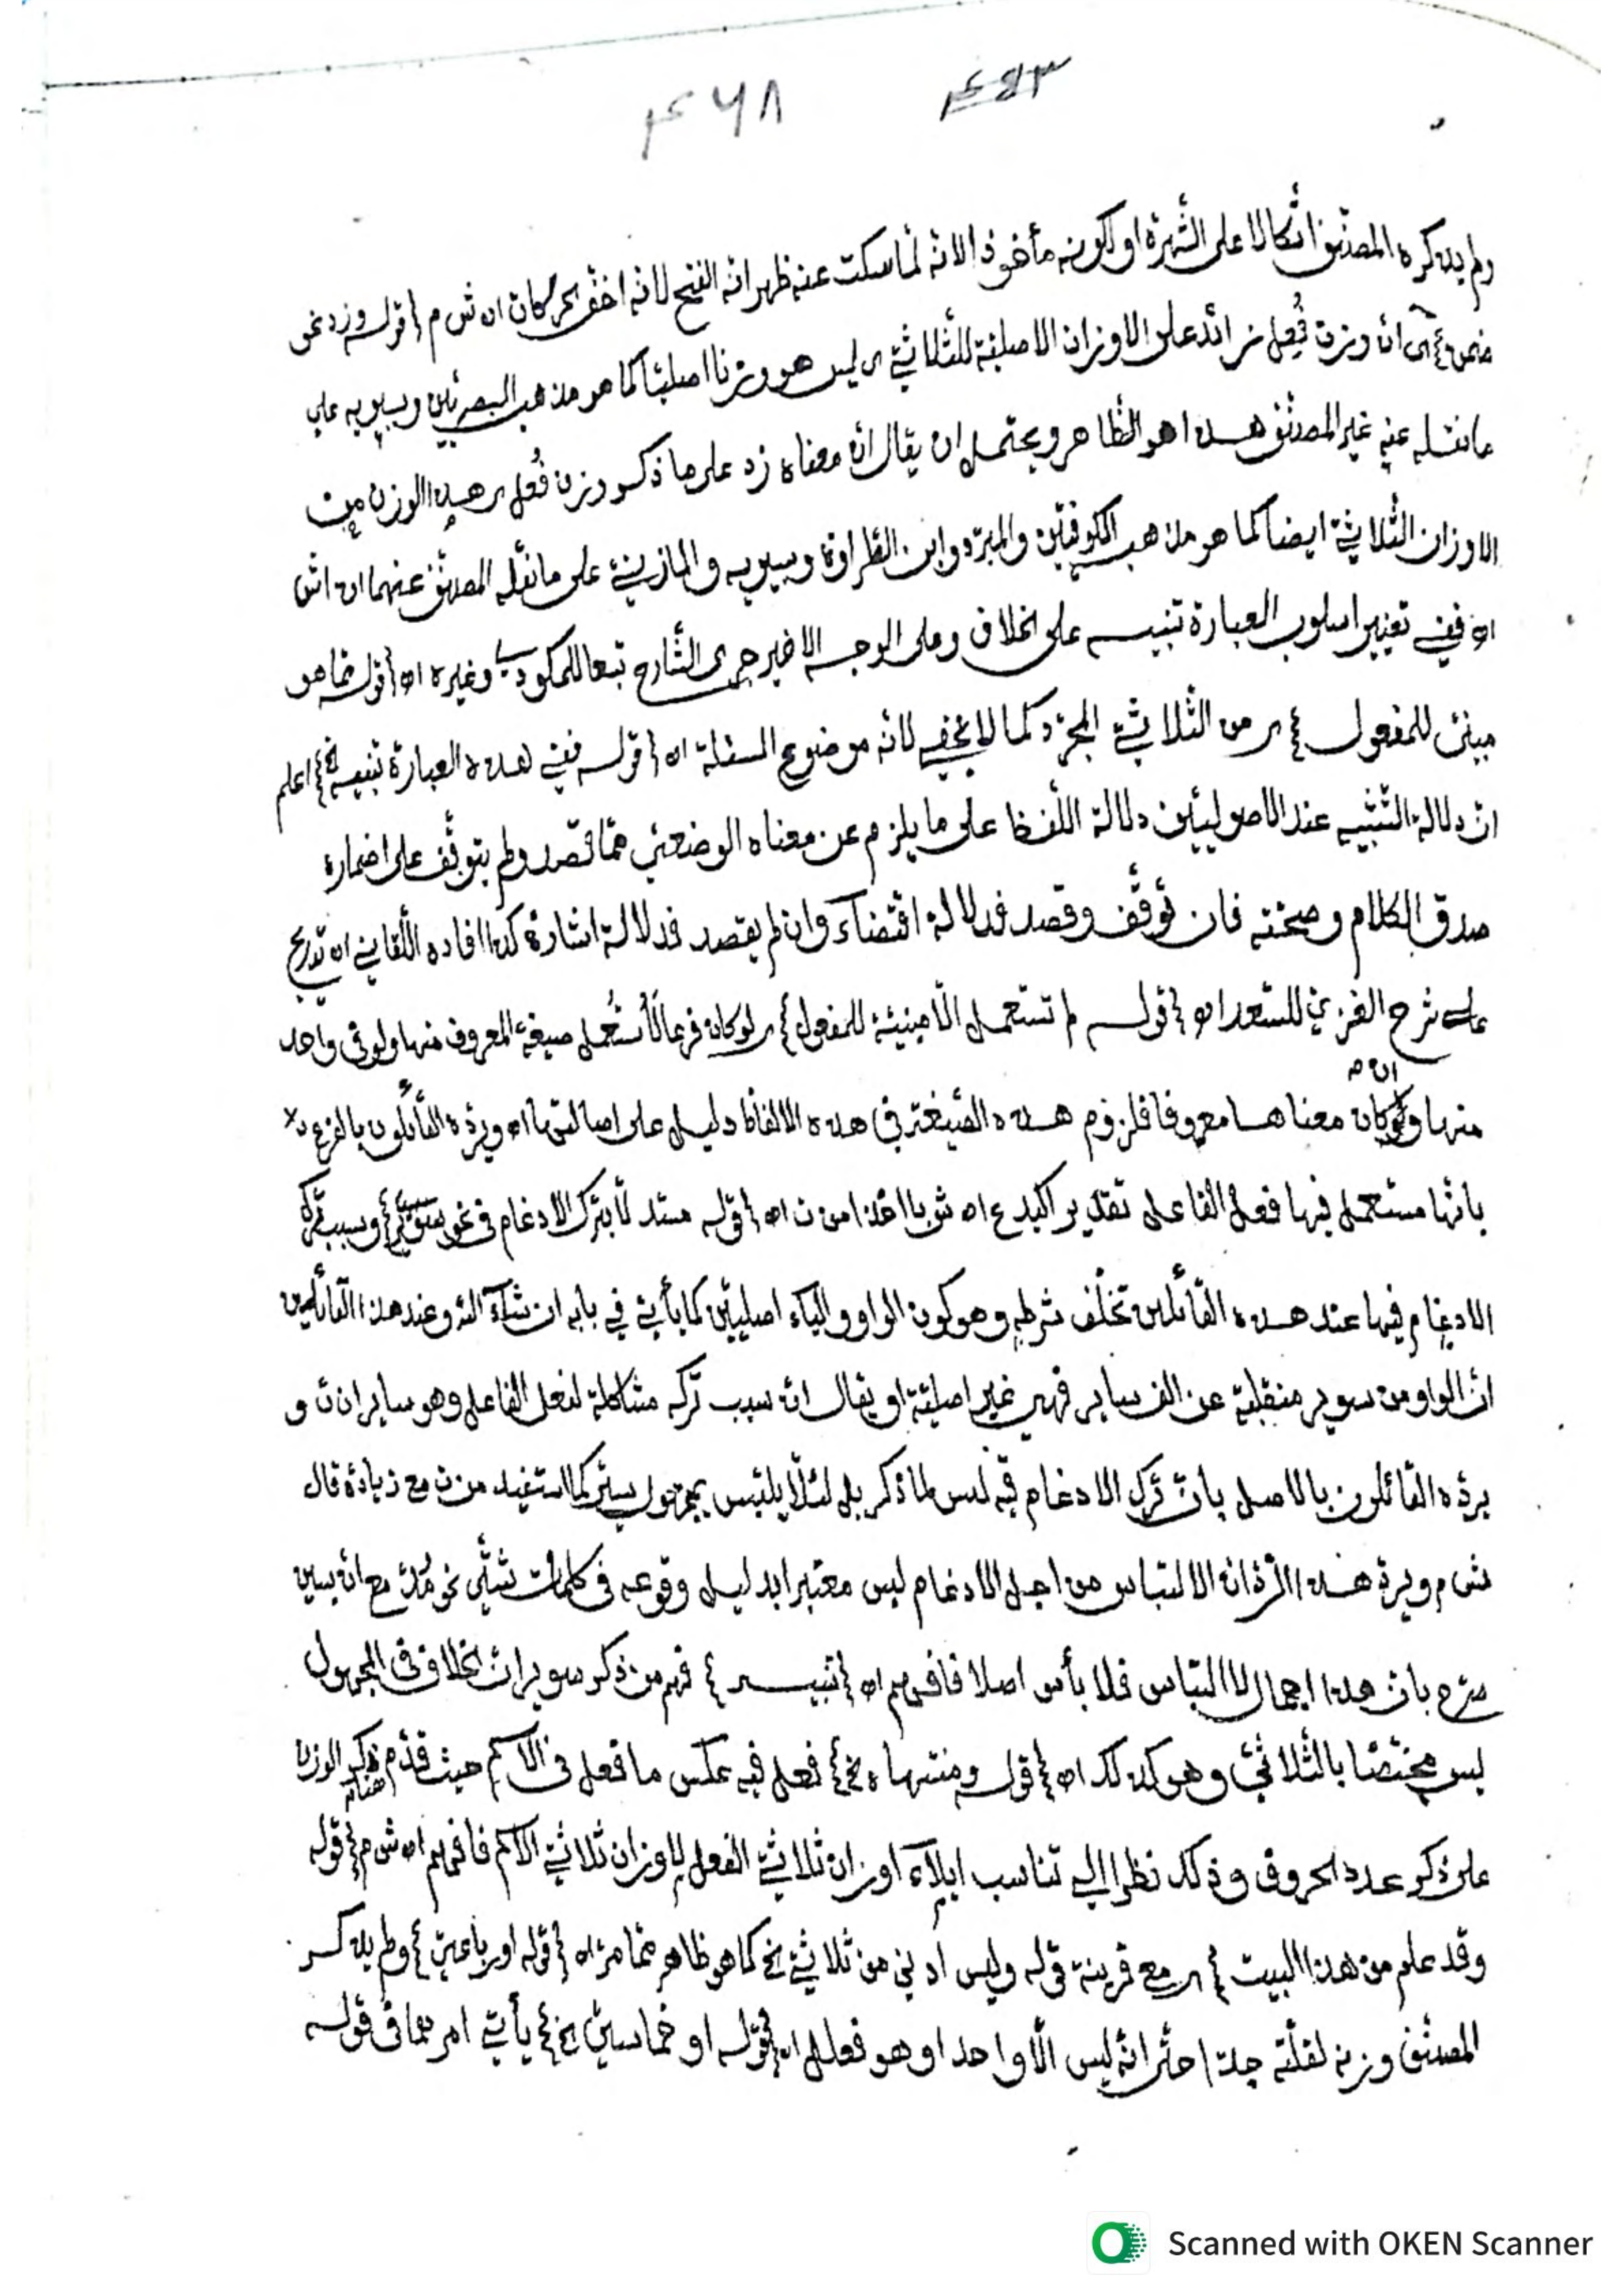 ۴۶۸ ۴۵۳
ولم يذكره المصنّف اتّكالا على الشّهرة او لكونه مأخوذا لانّه لمّا سكت عنه ظهر انّه الفتح لانّه اخفّ الحركات اه ش م {قوله وزد نحو
ضمن} اى انّ وزن فُعِل زائد على الاوزان الاصليّة للثّلاثيّ اى ليس هو وزنا اصليّا كما هو مذهب البصريّين وسيبويه على
ما نقله عنه غير المصنّف هذا هو الظّاهر ويحتمل ان يقال انّ معناه زد على ما ذكر وزن فُعِل اى هذا الوزن من
الاوزان الثّلاثيّة ايضا كما هو مذهب الكوفيّين والمبرّد وابن الطّراوة وسيبويه والمازنيّ على ما نقله المصنّف عنهما اه اش
اه ففي تغيير اسلوب العبارة تنبيه على الخلاف وعلى الوجه الاخير جرى الشّارح تبعا للمكوديّ وغيره اه {قوله فما هو
مبنيّ للمفعول} اى من الثّلاثيّ المجرّد كما لا يخفى لانّه موضوع المسئلة اه {قوله ففي هذه العبارة تنبيه الخ} اعلم
انّ دلالة التّنبيه عند الاصوليّين دلالة اللّفظ على ما يلزم عن معناه الوضعيّ ممّا قصد ولم يتوقّف على اضماره
صدق الكلام وصحّته فان توقّف وقصد فدلالة اقتضآء وان لم يقصد فدلالة اشارة كذا افاده اللّقاني اه تدريج
على شرح الغزي للسّعد اه {قوله لم تستعمل الّا مبنيّة للمفعول} اى لو كان فرعا لاُستُعمل صيغة المعروف منها ولو في واحد
ان م
منها ولو كان معناها معروفا فلزوم هذه الصّيغة في هذه الالفاظ دليل على اصالتها اه ويردّه القائلون بالفرعيّة
بانّها مستعمل فيها فعل الفاعل تقديرا كيدع اه شوبا اخذا من ن اه {قوله مستدلّا بترك الادغام في نحو سوير} وسبب ترك
الادغام فيها عند هذه القائلين تخلّف شرطه وهو كون الواو والياء اصليّين كما يأتي في بابه ان شآء اللّه وعند هذا القائلين
انّ الواو من سوير منقلبة عن الف ساير فهي غير اصليّة او يقال انّ سبب تركه مشاكلة لفعل الفاعل وهو ساير اه ن و
يردّه القائلون بالاصل بانّ ترك الادغام فيه ليس لما ذكر بل لئلّا يلتبس بمجهول سيّر كما استفيد من ن مع زيادة قال
ش م ويردّ هذا الرّدّ انّ الالتباس من اجل الادغام ليس معتبرا بدليل وقوعه في كلمات شتّى نحو مُدّ مع انّ يسين
صرّح بانّ هذا اجمال لا التباس فلا بأس اصلا فافهم اه {تنبيه} فهم من ذكر سوير انّ الخلاف في المجهول
ليس مختصّا بالثّلاثيّ وهو كذلك اه {قوله ومنتهاه الخ} فعل فيه عكس ما فعل في الاسم حيث قدّم هناك ذكر الوزن
على ذكر عدد الحروف وذلك نظرا الى تناسب ايلآء اوزان ثلاثيّ الفعل لاوزان ثلاثيّ الاسم فافهم اه ش م {قوله
وقد علم من هذا البيت} اى مع قرينة قوله وليس ادنى من ثلاثيّ الخ كما هو ظاهر ممّا مرّ اه {قوله او رباعيّ} ولم يذكر
المصنّف وزنه لقلّته جدّا حتّى انّه ليس الّا واحدا وهو فعلل اه {قوله او خماسيّ الخ} يأتي امر معا في قوله
Scanned with OKEN Scanner